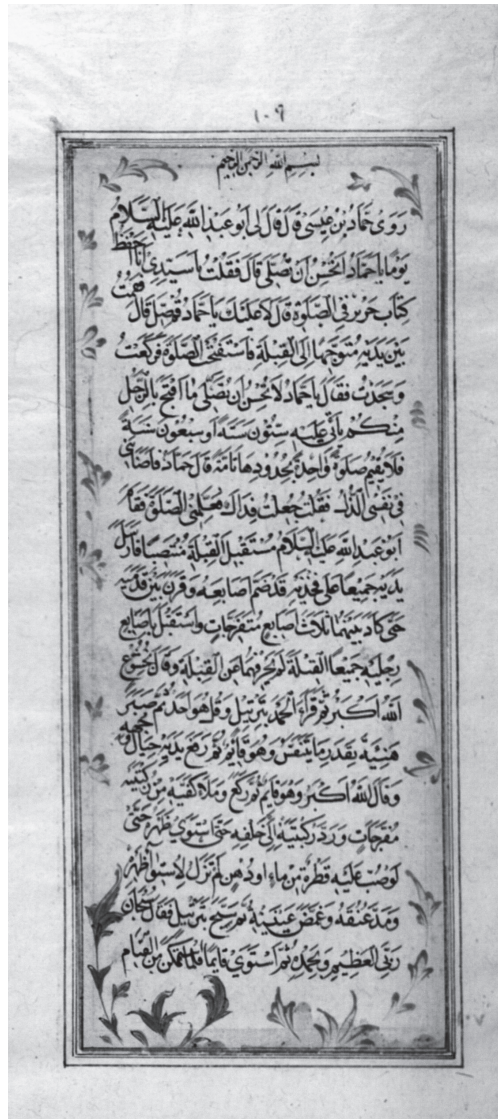 ١٠٩
بسم الله الرحمن الرحيم
رَوى حَمّادُ بن عِيسَى قالَ قالَ لى ابو عَبدِ اللهِ عَلَيهِ السَّلامُ
يَومًا يا حَمّادُ اتُحسِنُ ان تُصَلّى قالَ فَقُلتُ يا سَيّدِى انَا احفَظُ
كتاب حريز فى الصَّلوةِ قالَ لا عَلَيكَ يا حَمّادُ قُم صَلِّ قالَ فَقُمتُ
بَينَ يَدَيهِ مُتَوَجّهًا الى القبلَةِ فاستَفتَحتُ الصَّلوةَ فَرَكَعتُ
وَسَجَدتُ فَقالَ يا حَمّادُ لا تُحسِنُ ان تُصَلّى ما اقبَحَ بِالرَّجُلِ
مِنكُم يَأتى عَلَيهِ سِتُّونَ سَنَةً او سَبعُونَ سَنَةً
فَلا يُقيمُ صَلوةً واحِدَةً بِحُدُودِها تامَّةً قالَ حَمّادُ فَاصابَنى
فى نَفسِى الذُّلُّ فَقُلتُ جُعِلتُ فِداكَ فَعَلِّمنى الصَّلوةَ فَقامَ
ابو عَبدِ اللهِ عَلَيهِ السَّلامُ مُستَقبِلَ القِبلَةِ مُنتَصِبًا فَارسَلَ
يَدَيهِ جَميعًا عَلى فَخِذَيهِ قَد ضَمَّ اصابِعَهُ وَقَرَّبَ بَينَ قَدَمَيهِ
حَتّى كانَ بَينَهُما ثَلاثُ اصابِعَ مُتَفَرِّجاتٍ واستَقبَلَ بِاصابِعِ
رِجلَيهِ جَميعًا القِبلَةَ لَم يُحَرِّفهُما عَنِ القِبلَةِ وَقالَ بِخُشُوعٍ
اللهُ اكبَرُ ثُمَّ قَرَأَ الحَمدَ بِتَرتيلٍ وَقُل هُوَ اللهُ احَدٌ ثُمَّ صَبَرَ
هُنَيَّةً بِقَدرِ ما يَتَنَفَّسُ وَهُوَ قائِمٌ ثُمَّ رَفَعَ يَدَيهِ حِيالَ وَجهِهِ
وَقالَ اللهُ اكبَرُ وَهُوَ قائِمٌ ثُمَّ رَكَعَ وَمَلَأَ كَفَّيهِ مِن رُكبَتَيهِ
مُفَرَّجاتٍ وَرَدَّ رُكبَتَيهِ الى خَلفِهِ حَتّى استَوى ظَهرُهُ حَتّى
لَو صُبَّ عَلَيهِ قَطرَةٌ مِن ماءٍ او دُهنٍ لَم تَزَل لِاستِواءِ ظَهرِهِ
وَمَدَّ عُنُقَهُ وَغَمَّضَ عَينَيهِ ثُمَّ سَبَّحَ بِتَرتيلٍ فَقالَ سُبحانَ
رَبّىَ العَظيمِ وَبِحَمدِهِ ثُمَّ استَوى قائِمًا فَلَمَّا استَمكَنَ مِنَ القِيامِ